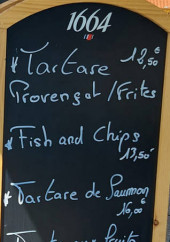 1664
Tartare 18,50€
Provençal / Frites
Fish and Chips
17,50€
Tartare de Saumon
16,00€